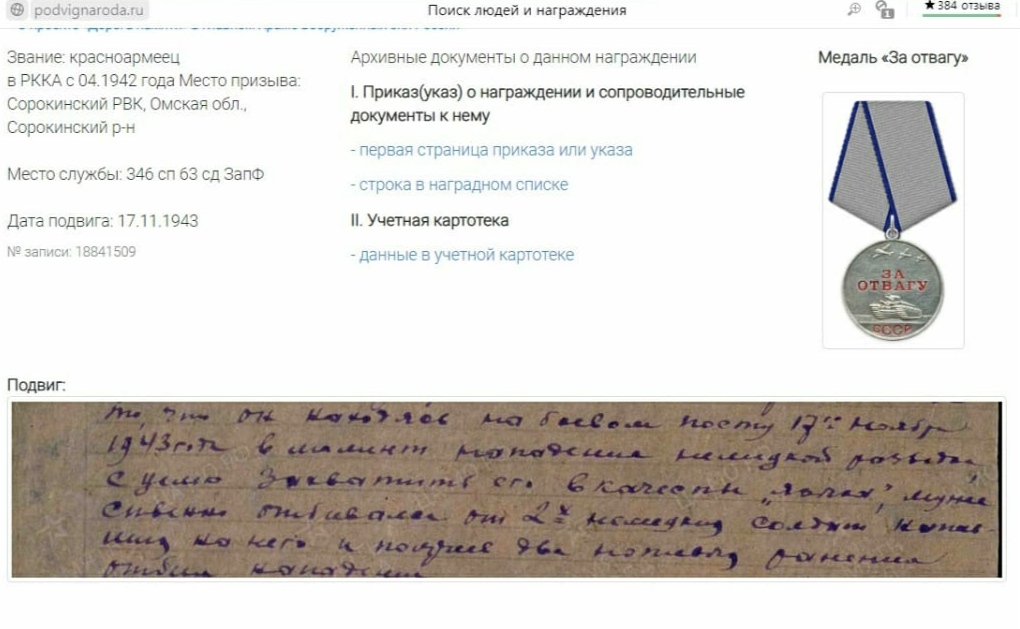 podvignaroda.ru
Поиск людей и награждения
★ 384 отзыва
Звание: красноармеец
в РККА с 04.1942 года Место призыва:
Сорокинский РВК, Омская обл.,
Сорокинский р-н
Место службы: 346 сп 63 сд ЗапФ
Дата подвига: 17.11.1943
№ записи: 18841509
Архивные документы о данном награждении
I. Приказ(указ) о награждении и сопроводительные
документы к нему
- первая страница приказа или указа
- строка в наградном списке
II. Учетная картотека
- данные в учетной картотеке
Медаль «За отвагу»
ЗА
ОТВАГУ
СССР
Подвиг:
то, что он находясь на боевом посту 17го ноябр
1943 года в момент нападения немецкой разведки
с целью захватить его в качестве „языка", муже
ственно отбивался от 2х немецких солдат напав-
ших на него и получив два ножевых ранения
отбил нападение